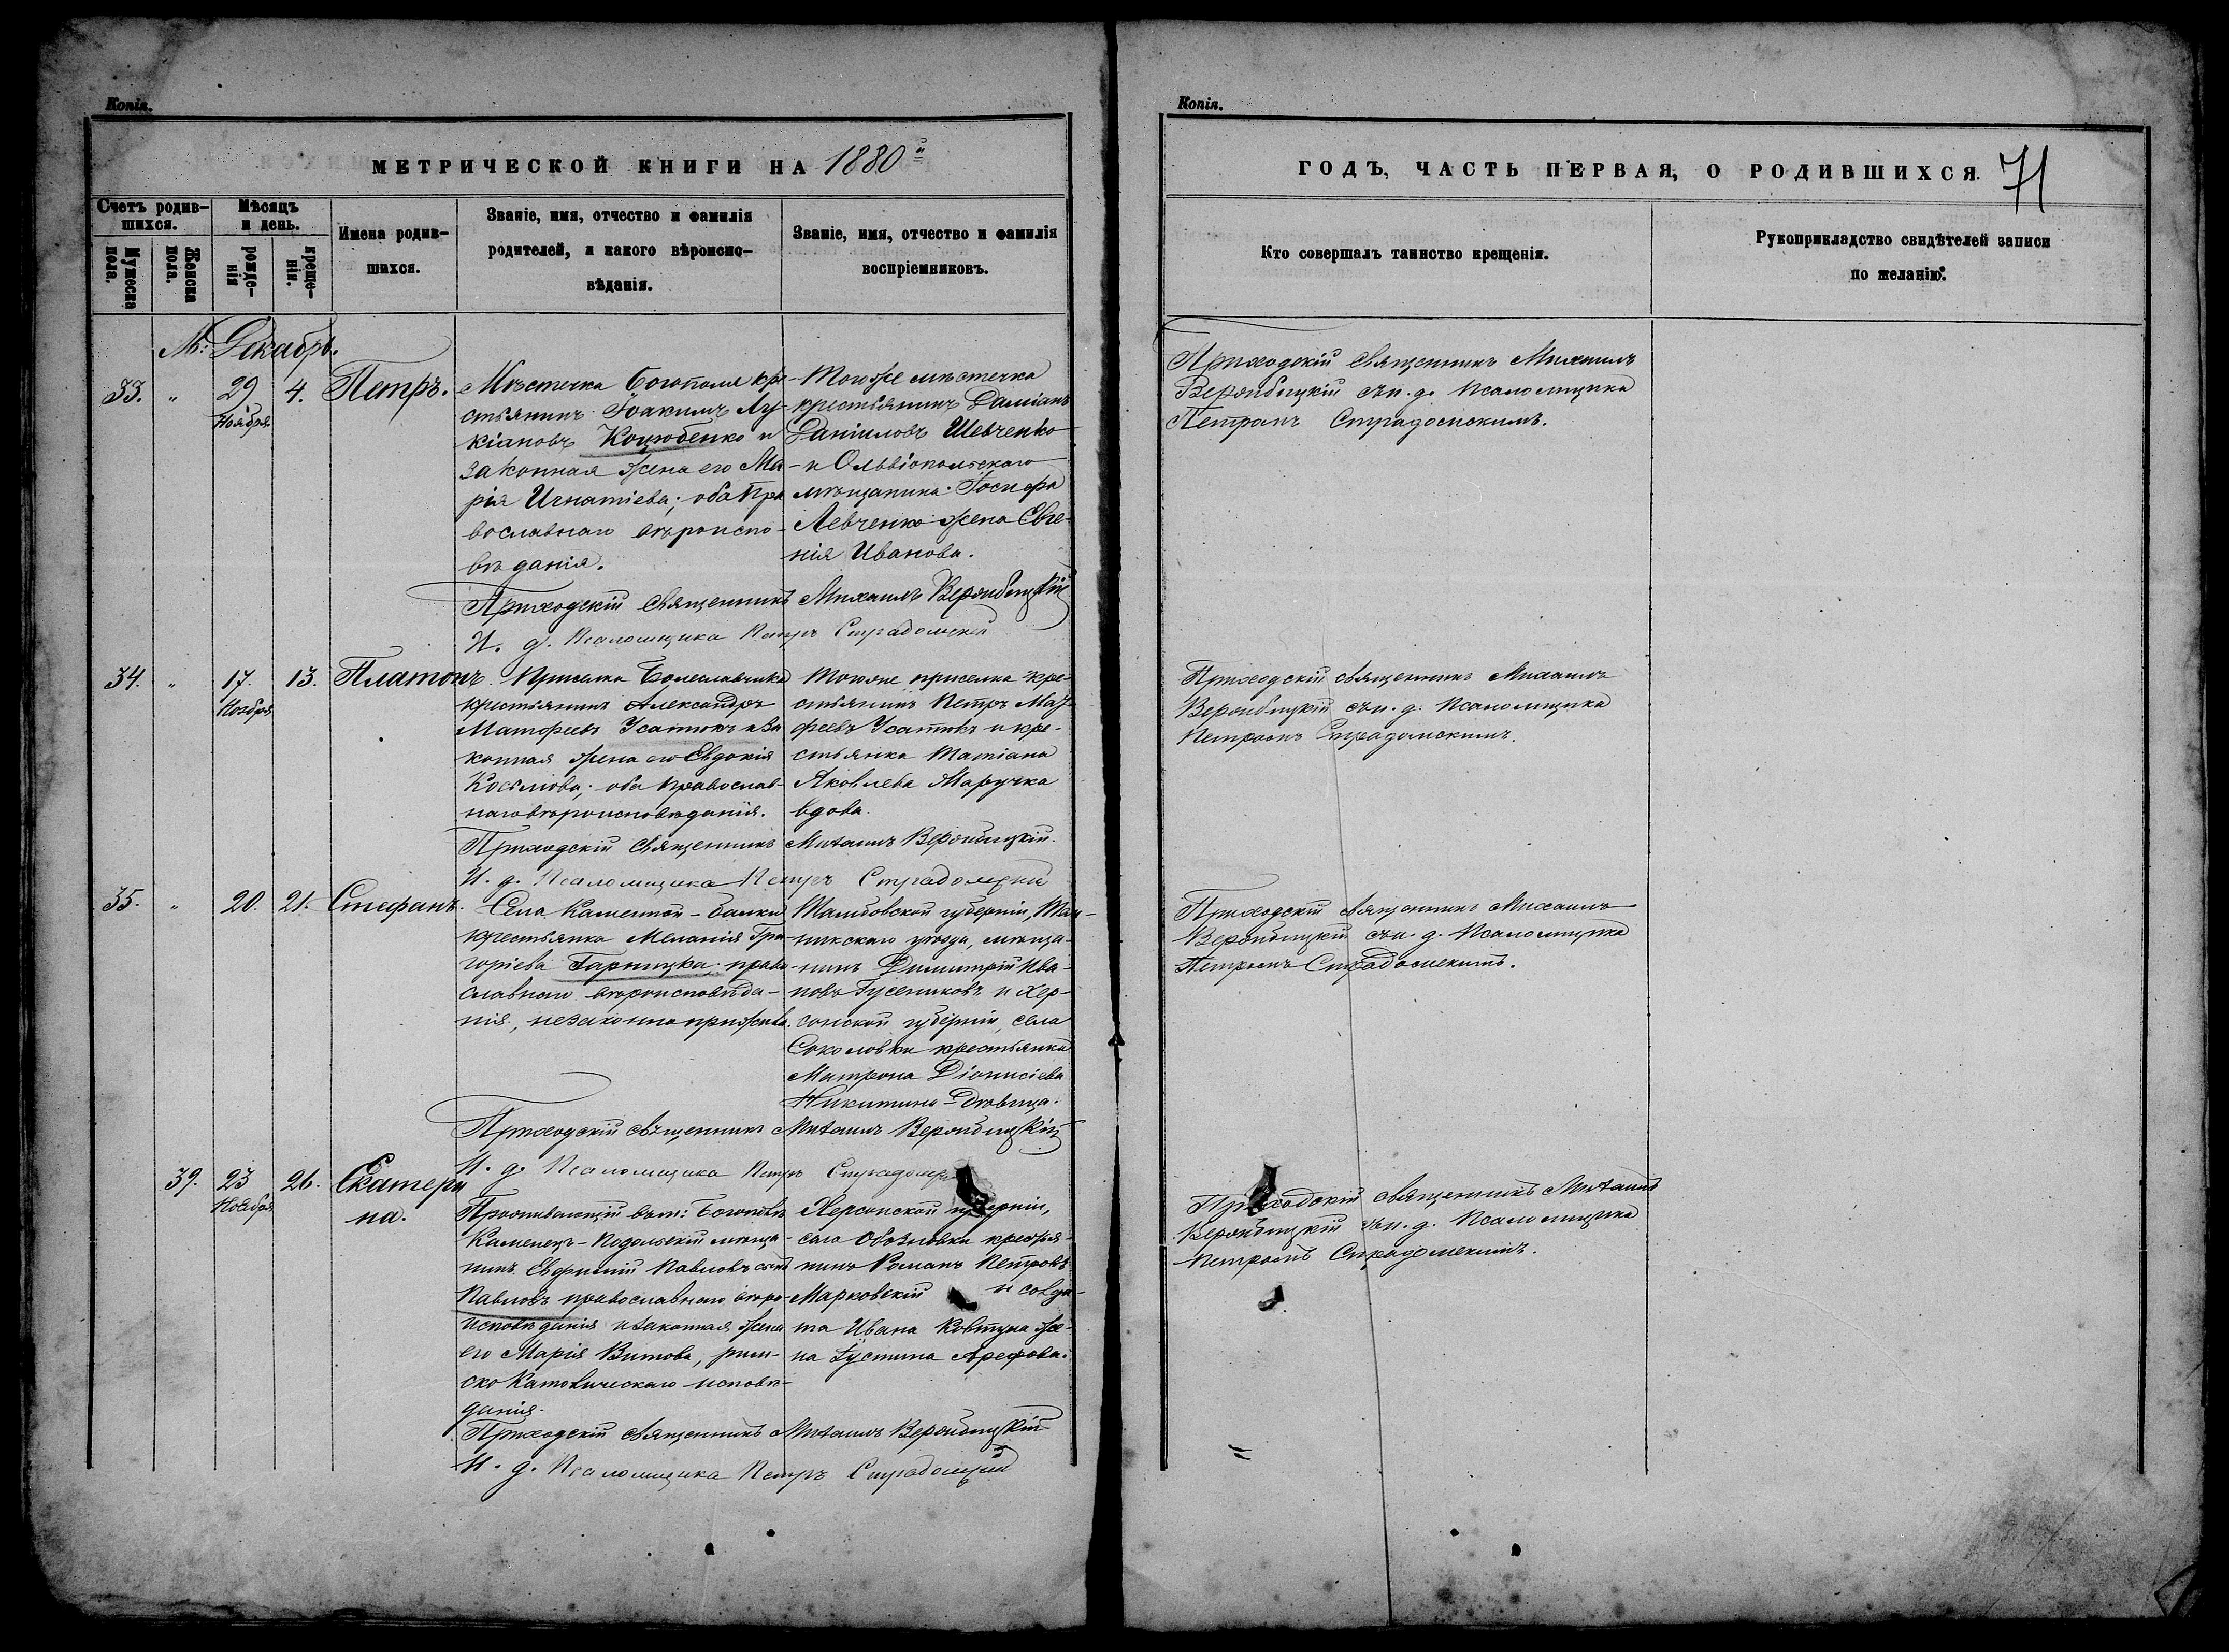 Копія.
МЕТРИЧЕСКОЙ КНИГИ НА 1880й
Счетъ родив-
шихся.
Мужеска
пола.
Женска
пола.
Мѣсяцъ
и день.
рожде-
нія
креще-
нія.
Имена родив-
шихся.
Званіе, имя, отчество и фамилія
родителей, и какого вѣроиспо-
вѣданія.
Званіе, имя, отчество и фамилія
воспріемниковъ.
М: Декабрь.
33. „ 29 Ноября 4. Петръ.
Мѣстечка Богополя кре-
стьянинъ Іоакимъ Лу-
кіановъ Коцюбенко и
законная жена его Ма-
рія Игнатіева; оба пра
вославнаго вѣроиспо-
вѣданія.
Того же мѣстечка
крестьянинъ Даміанъ
Даніиловъ Шевченко
и Ольвіопольскаго
мѣщанина Іосифа
Левченко жена Евге-
нія Иванова.
Приходскій священникъ Михаилъ Вербицкій
И. д. Псаломщика Петръ Страдомскій
34. „ 17. Ноября 13. Платонъ.
Приселка Болеславчика
крестьянинъ Александръ
Матфеевъ Усатюкъ и за
конная жена его Евдокія
Косьмова; оба православ-
наго вѣроисповѣданія.
Того же приселка кре-
стьянинъ Петръ Мат
феевъ Усатюкъ и кре-
стьянка Татіана
Яковлева Маручка
вдова.
Приходскій священникъ Михаилъ Вербицкій.
И. д. Псаломщика Петръ Страдомскій
35. „ 20. 21. Стефанъ.
Села Каменной-балки
крестьянка Меланія Гри
горіева Гарницка, право
славнаго вѣроисповѣда-
нія, незаконно прижив.
Тамбовской губерніи,
уѣзда, мѣща-
нинъ Димитрій Ива-
новъ Гусениковъ и Хер-
сонской губерніи, села
Соколовки крестьянка
Матрона Діонисіева
Никитина-Дѣвица.
Приходскій священникъ Михаилъ Вербицкій
И. д. Псаломщика Петръ Страдомскій
39. 23 Ноября 26. Екатери
на.
Проживающій въ м: Богополѣ
Каменецъ-Подольскій мѣща-
нинъ Евфимій Павловъ сынъ
Павловъ православнаго вѣро-
исповѣданія и законная жена
его Марія Витова, рим-
ско Католическаго исповѣ-
данія.
Херсонской губерніи,
села Обозновки крестья-
нинъ Романъ Петровъ
Марковскій и солда-
та Ивана Ковтуна же-
на Іустина Арефова.
Приходскій священникъ Михаилъ Вербицкій
И. д. Псаломщика Петръ Страдомскій
Копія.
ГОДЪ, ЧАСТЬ ПЕРВАЯ, О РОДИВШИХСЯ.
71
Кто совершалъ таинство крещенія.
Рукоприкладство свидѣтелей записи
по желанію.
Приходскій священникъ Михаилъ
Вербицкій съ и. д. Псаломщика
Петромъ Страдомскимъ.
Приходскій священникъ Михаилъ
Вербицкій съ и. д. Псаломщика
Петромъ Страдомскимъ.
Приходскій священникъ Михаилъ
Вербицкій съ и. д. Псаломщика
Петромъ Страдомскимъ.
Приходскій священникъ Михаилъ
Вербицкій съ и. д. Псаломщика
Петромъ Страдомскимъ.